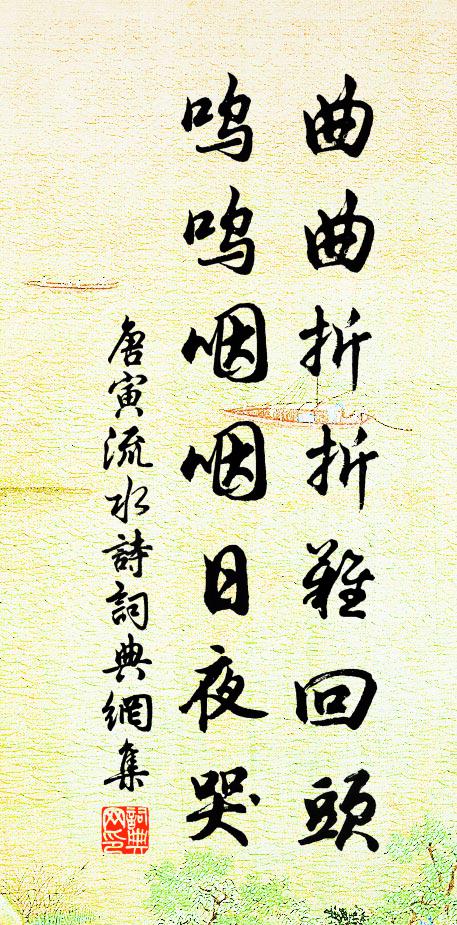 曲曲折折難回頭
嗚嗚咽咽日夜哭
唐寅流水詩詞典網集
詞典網印